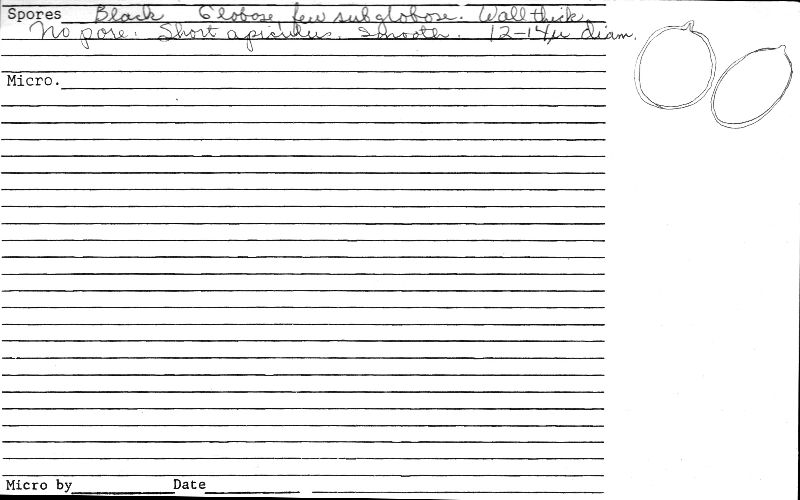 Spores Black Globose few subglobose. Wall thick
No pore. Short apiculus. Smooth. 12-14µ diam.
Micro.
Micro by Date